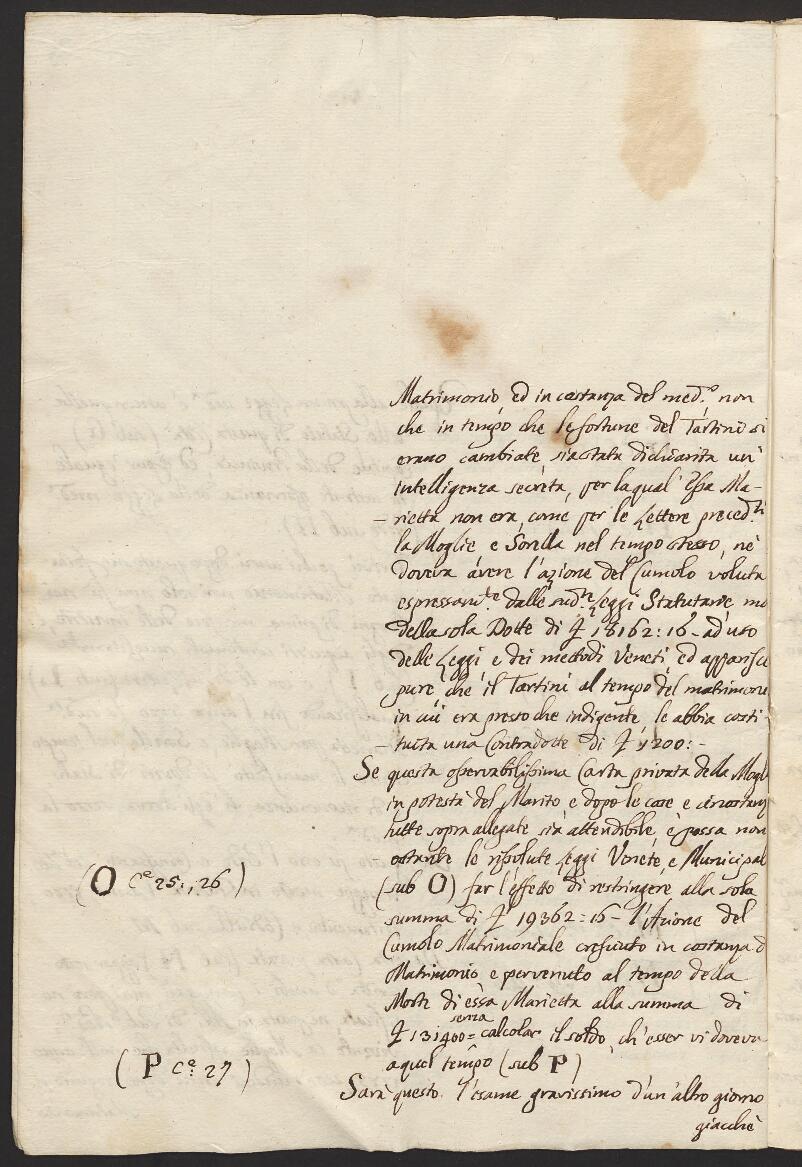 Matrimonio ed in costanza del med.º non
che in tempo che le fortune del Tartini si
erano cambiate, sia stata dichiarita un'
intelligenza secreta, per la qual' Essa Ma-
-rietta non era, come per le Lettere preced.ti
la Moglie e Sorella nel tempo stesso, nè
doveva avere l'azione del Cumolo voluta
espressam.te dalle sud.te Leggi Statutarie, ma
della sola Dotte di £ 18162:16- ad uso
delle Leggi e dei mettodi Veneti, ed apparisce
pure che il Tartini al tempo del matrimonio
in cui era presto che indigente, le abbia costi
-tuita una Contradotte di £ 1200:-
Se questa osservabilissima Carta privata della Mogl
in potestà del Marito e dopo le cose e circostanz
tutte sopra allegate sia attendibile, e possa non
-ostante le rissolute Leggi Venete, e Municipal
(sub O) far l'effetto di restringere alla sola
summa di £ 19362:16- l'Azione del
Cumolo Matrimoniale cresciuto in costanza d
Matrimonio e pervenuto al tempo della
Morte di essa Marietta alla summa di
£ 131400= senza calcolar il soldo, ch'esser vi doveva
a quel tempo (sub P)
Sarà questo l'esame gravissimo d'un'altro giorno
giacchè
(O C.e 25:, 26)
(P C.e 27)